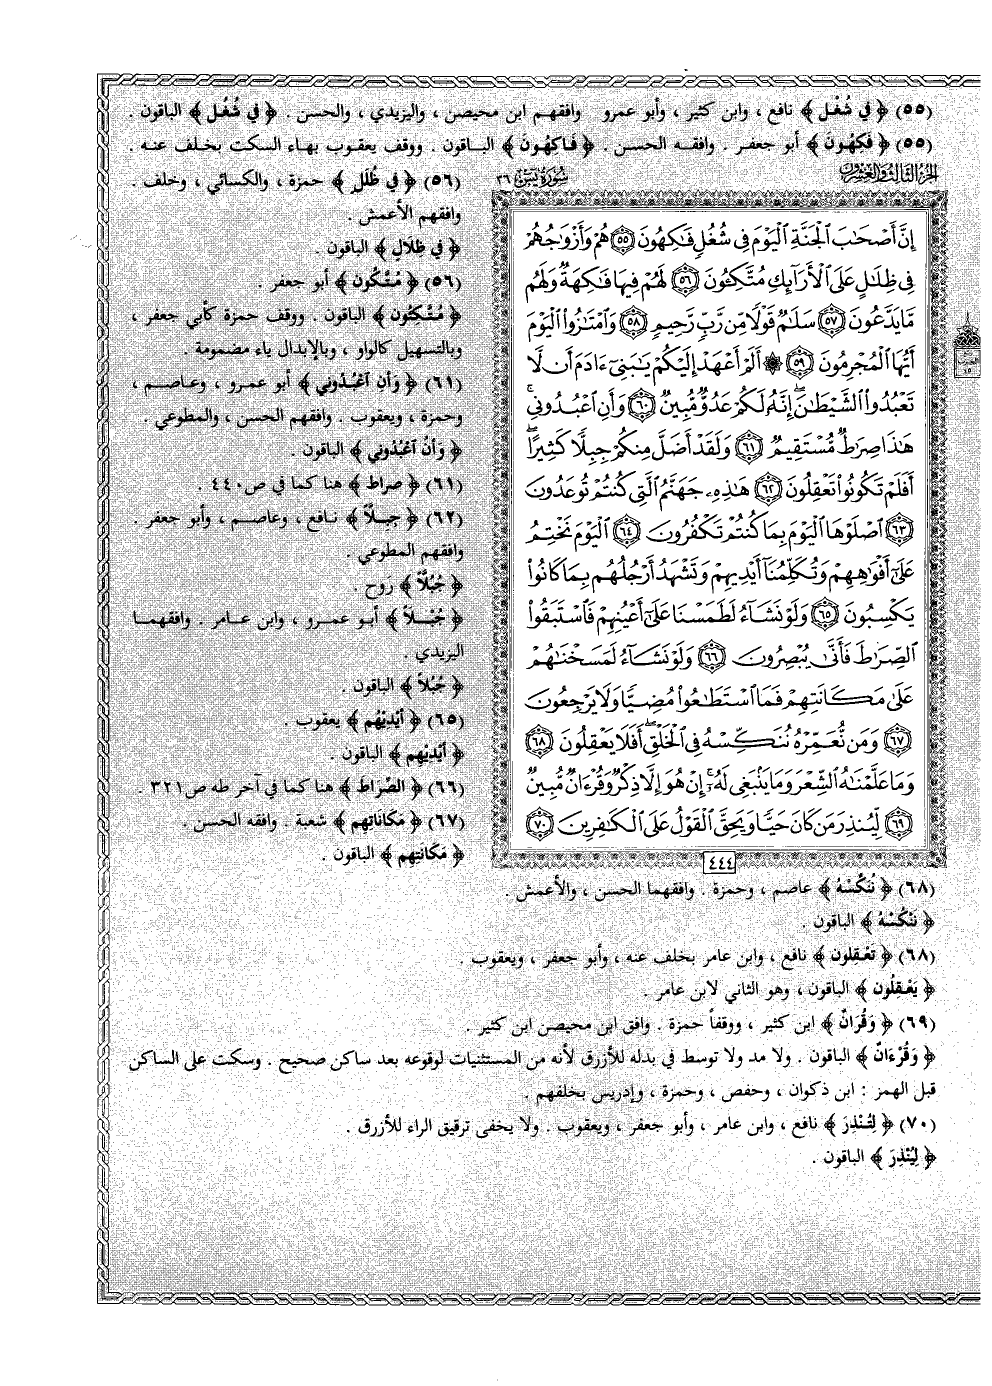 (٥٥) ﴿ فِي شُغْلٍ ﴾ نافع ، وابن كثير ، وأبو عمرو وافقهم ابن محيصن ، واليزيدي ، والحسن . ﴿ فِي شُغُلٍ ﴾ الباقون .
(٥٥) ﴿ فَكِهُونَ ﴾ أبو جعفر . وافقه الحسن . ﴿ فَاكِهُونَ ﴾ الباقون . ووقف يعقوب بهاء السكت بخلف عنه .
الجزء الثالث والعشرون
سورة يس ٣٦
إِنَّ أَصْحَٰبَ ٱلْجَنَّةِ ٱلْيَوْمَ فِى شُغُلٍ فَٰكِهُونَ ٥٥ هُمْ وَأَزْوَٰجُهُمْ
فِى ظِلَٰلٍ عَلَى ٱلْأَرَآئِكِ مُتَّكِـُٔونَ ٥٦ لَهُمْ فِيهَا فَٰكِهَةٌ وَلَهُم
مَّا يَدَّعُونَ ٥٧ سَلَٰمٌ قَوْلًا مِّن رَّبٍّ رَّحِيمٍ ٥٨ وَٱمْتَٰزُوا۟ ٱلْيَوْمَ
أَيُّهَا ٱلْمُجْرِمُونَ ٥٩ ۞ أَلَمْ أَعْهَدْ إِلَيْكُمْ يَٰبَنِىٓ ءَادَمَ أَن لَّا
تَعْبُدُوا۟ ٱلشَّيْطَٰنَ ۖ إِنَّهُۥ لَكُمْ عَدُوٌّ مُّبِينٌ ٦٠ وَأَنِ ٱعْبُدُونِى ۚ
هَٰذَا صِرَٰطٌ مُّسْتَقِيمٌ ٦١ وَلَقَدْ أَضَلَّ مِنكُمْ جِبِلًّا كَثِيرًا ۖ
أَفَلَمْ تَكُونُوا۟ تَعْقِلُونَ ٦٢ هَٰذِهِۦ جَهَنَّمُ ٱلَّتِى كُنتُمْ تُوعَدُونَ
٦٣ ٱصْلَوْهَا ٱلْيَوْمَ بِمَا كُنتُمْ تَكْفُرُونَ ٦٤ ٱلْيَوْمَ نَخْتِمُ
عَلَىٰٓ أَفْوَٰهِهِمْ وَتُكَلِّمُنَآ أَيْدِيهِمْ وَتَشْهَدُ أَرْجُلُهُم بِمَا كَانُوا۟
يَكْسِبُونَ ٦٥ وَلَوْ نَشَآءُ لَطَمَسْنَا عَلَىٰٓ أَعْيُنِهِمْ فَٱسْتَبَقُوا۟
ٱلصِّرَٰطَ فَأَنَّىٰ يُبْصِرُونَ ٦٦ وَلَوْ نَشَآءُ لَمَسَخْنَٰهُمْ
عَلَىٰ مَكَانَتِهِمْ فَمَا ٱسْتَطَٰعُوا۟ مُضِيًّا وَلَا يَرْجِعُونَ
٦٧ وَمَن نُّعَمِّرْهُ نُنَكِّسْهُ فِى ٱلْخَلْقِ ۖ أَفَلَا يَعْقِلُونَ ٦٨
وَمَا عَلَّمْنَٰهُ ٱلشِّعْرَ وَمَا يَنۢبَغِى لَهُۥٓ ۚ إِنْ هُوَ إِلَّا ذِكْرٌ وَقُرْءَانٌ مُّبِينٌ
٦٩ لِّيُنذِرَ مَن كَانَ حَيًّا وَيَحِقَّ ٱلْقَوْلُ عَلَى ٱلْكَٰفِرِينَ ٧٠
٤٤٤
(٥٦) ﴿ فِي ظُلَلٍ ﴾ حمزة ، والكسائي ، وخلف .
وافقهم الأعمش .
﴿ فِي ظِلَالٍ ﴾ الباقون .
(٥٦) ﴿ مُتَّكُون ﴾ أبو جعفر .
﴿ مُتَّكِئُون ﴾ الباقون . ووقف حمزة كأبي جعفر ،
وبالتسهيل كالواو ، وبالإبدال ياء مضمومة .
(٦١) ﴿ وَأَنِ اعْبُدُوني ﴾ أبو عمرو ، وعاصم ،
وحمزة ، ويعقوب . وافقهم الحسن ، والمطوعي .
﴿ وَأَنُ اعْبُدُوني ﴾ الباقون .
(٦١) ﴿ صراط ﴾ هنا كما في ص٤٤٠ .
(٦٢) ﴿ جِبِلّاً ﴾ نافع ، وعاصم ، وأبو جعفر .
وافقهم المطوعي .
﴿ جُبُلّاً ﴾ روح .
﴿ جُبْلاً ﴾ أبو عمرو ، وابن عامر . وافقهما
اليزيدي .
﴿ جُبُلاً ﴾ الباقون .
(٦٥) ﴿ أَيْدِيْهُم ﴾ يعقوب .
﴿ أَيْدِيْهِم ﴾ الباقون .
(٦٦) ﴿ الصِّرَاط ﴾ هنا كما في آخر طه ص٣٢١ .
(٦٧) ﴿ مَكَانَاتِهِم ﴾ شعبة . وافقه الحسن .
﴿ مَكَانَتِهِم ﴾ الباقون .
(٦٨) ﴿ نُنَكِّسْهُ ﴾ عاصم ، وحمزة . وافقهما الحسن ، والأعمش .
﴿ نَنْكُسْهُ ﴾ الباقون .
(٦٨) ﴿ تَعْقِلُون ﴾ نافع ، وابن عامر بخلف عنه ، وأبو جعفر ، ويعقوب .
﴿ يَعْقِلُون ﴾ الباقون ، وهو الثاني لابن عامر .
(٦٩) ﴿ وَقُرَانٌ ﴾ ابن كثير ، ووقفاً حمزة . وافق ابن محيصن ابن كثير .
﴿ وَقُرْءَانٌ ﴾ الباقون . ولا مد ولا توسط في بدله للأزرق لأنه من المستثنيات لوقوعه بعد ساكن صحيح . وسكت على الساكن
قبل الهمز : ابن ذكوان ، وحفص ، وحمزة ، وإدريس بخلفهم .
(٧٠) ﴿ لِتُنْذِرَ ﴾ نافع ، وابن عامر ، وأبو جعفر ، ويعقوب . ولا يخفى ترقيق الراء للأزرق .
﴿ لِيُنْذِرَ ﴾ الباقون .